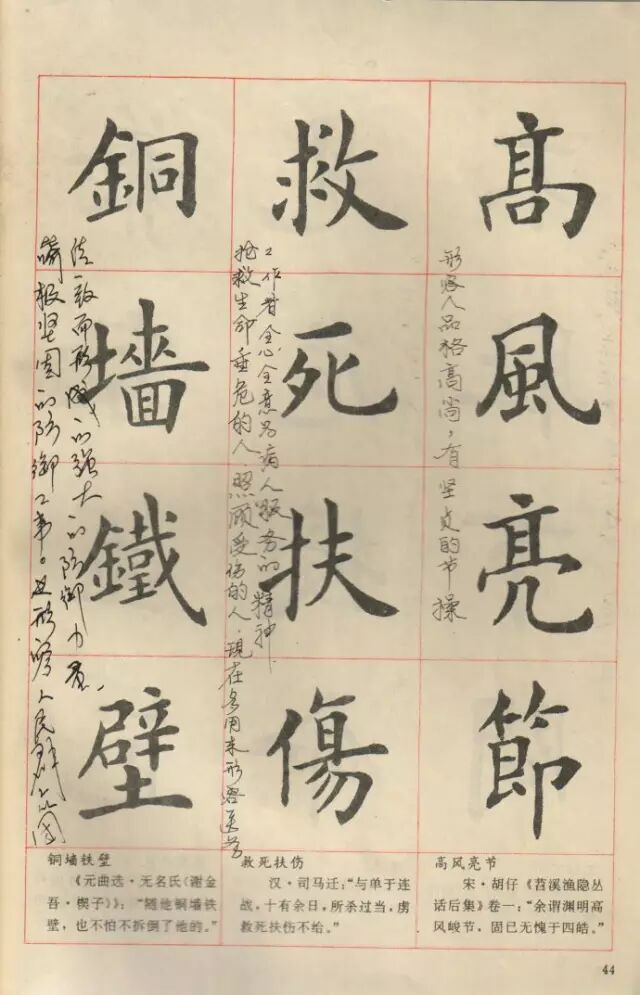 髙風亮節
形容人品格高尚,有坚贞的节操
救死扶傷
抢救生命垂危的人.照顾受伤的人.现在多用来形容医务
工作者全心全意为病人服务的精神
銅墻鐵壁
喻极坚固的防御工事。也形容人民群众的团
结一致而形成的强大的防御力量.
高风亮节
宋·胡仔《苕溪渔隐丛
话后集》卷一:“余谓渊明高
风峻节,固已无愧于四皓。”
救死扶伤
汉·司马迁:“与单于连
战,十有余日,所杀过当,虏
救死扶伤不给。”
铜墙铁壁
《元曲选·无名氏(谢金
吾·楔子)》:“随他铜墙铁
壁,也不怕不拆倒了他的。”
44